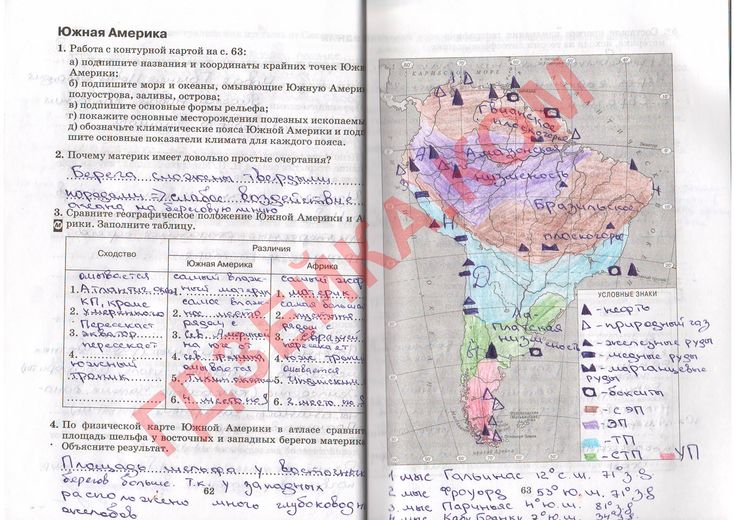 Южная Америка
1. Работа с контурной картой на с. 63:
а) подпишите названия и координаты крайних точек Южн
Америки;
б) подпишите моря и океаны, омывающие Южную Амери
полуострова, заливы, острова;
в) подпишите основные формы рельефа;
г) покажите основные месторождения полезных ископаемы
д) обозначьте климатические пояса Южной Америки и подп
шите основные показатели климата для каждого пояса.
2. Почему материк имеет довольно простые очертания?
Берега сложены твердыми
породами → слабое воздействие
океана на береговую линию
3. Сравните географическое положение Южной Америки и А
рики. Заполните таблицу.
Сходство
Различия
Южная Америка
Африка
омывается
1. Атлантич. океан
КП, кроме
2. умеренного
Пересекает
3. экватор
пересекает
4.
южный
тропик
самый влаж-
1. ный матери
самое влаж
2. ное место
рядом с
3. сев. Америк
на юге от
4. сев.
омывается
5. Тихим океан
6. 4 место на
самый жар
1. материк
самая больша
2.
рядом с
3. Евразией
пересекает
4. юж. тропик
омывается
5. Индийским
6. 2 место на
4. По физической карте Южной Америки в атласе сравнит
площадь шельфа у восточных и западных берегов материк
Объясните результат.
Площадь шельфа у восточных
берегов больше. Т.к. у западных
расположено много глубоководн
желобов
62
КАРИБСКОЕ МОРЕ
Гвианское
плоскогорье
Амазонская
низменность
Бразильское
плоскогорье
Ла-
Платская
низменность
УСЛОВНЫЕ ЗНАКИ
- нефть
- природный газ
- железные руды
- медные руды
- марганцевые
руды
- бокситы
- СЭП
- ЭП
- ТП
- СТП
УП
1 мыс Гальинас 12° с.ш. 71° з д
2 мыс Фроуорд 63 53° ю.ш. 71° з д
3 мыс Париньяс 4° ю.ш. 81° з д
4 мыс Кабу-Бранку 7° ю.ш. 34° з д
ГДЗЕЙКА.КОМ